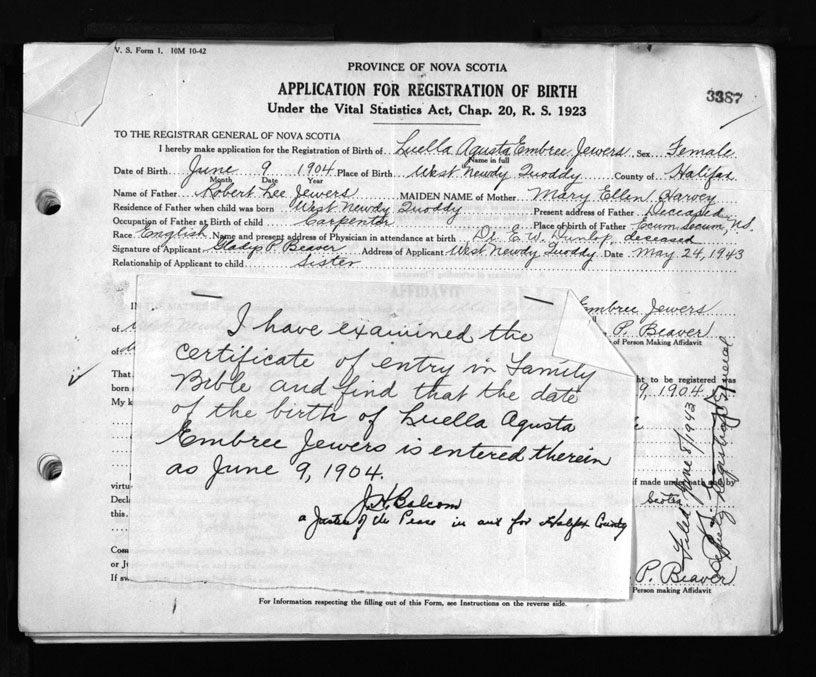 V. S. Form 1. 10M 10-42
PROVINCE OF NOVA SCOTIA
APPLICATION FOR REGISTRATION OF BIRTH
3387
Under the Vital Statistics Act, Chap. 20, R. S. 1923
TO THE REGISTRAR GENERAL OF NOVA SCOTIA
I hereby make application for the Registration of Birth of Luella Agusta Embree Jewers Sex Female
Name in full
Date of Birth June 9 1904 Place of Birth West Newdy Quoddy County of Halifax
Month Date Year
Name of Father Robert Lee Jewers MAIDEN NAME of Mother Mary Ellen Harvey
Residence of Father when child was born West Newdy Quoddy Present address of Father Deceased
Occupation of Father at Birth of child Carpenter Place of birth of Father Ecum Secum, N.S.
Race English Name and present address of Physician in attendance at birth Dr. E. W. Dunlop, deceased
Signature of Applicant Gladys P. Beaver Address of Applicant West Newdy Quoddy Date May 24, 1943
Relationship of Applicant to child Sister
AFFIDAVIT
IN
Embree Jewers
of
P. Beaver
of
of Person Making Affidavit
That
ht to be registered was
born
9, 1904
My k
I have examined the
certificate of entry in Family
Bible and find that the date
of the birth of Luella Agusta
Embree Jewers is entered therein
as June 9, 1904.
J. H. Balcom
a Justice of the Peace in and for Halifax County
virtu
if made under oath
Decl
Scotia
this
Filed June 8/1943
Deputy Registrar General
Com
or J
P. Beaver
If sw
Person making Affidavit
For Information respecting the filling out of this Form, see Instructions on the reverse side.